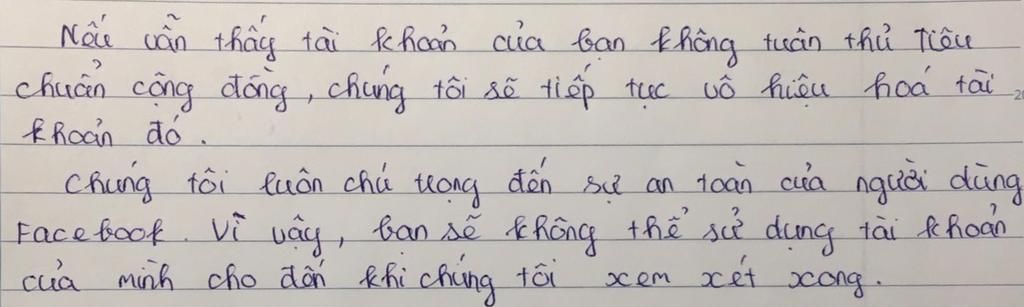 Nếu vẫn thấy tài khoản của bạn không tuân thủ Tiêu
chuẩn cộng đồng, chúng tôi sẽ tiếp tục vô hiệu hoá tài
khoản đó.
Chúng tôi luôn chú trọng đến sự an toàn của người dùng
Facebook. Vì vậy, bạn sẽ không thể sử dụng tài khoản
của mình cho đến khi chúng tôi xem xét xong.